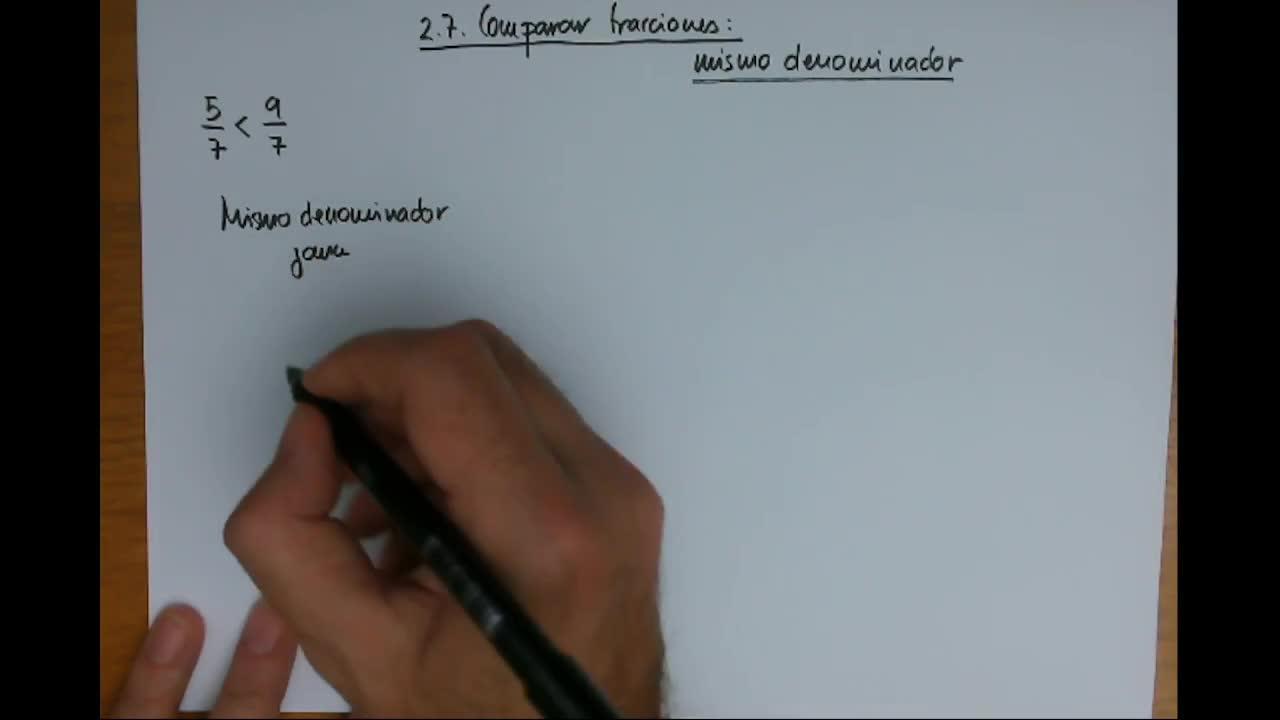 2.7. Comparar fracciones:
mismo denominador
5/7 < 9/7
Mismo denominador